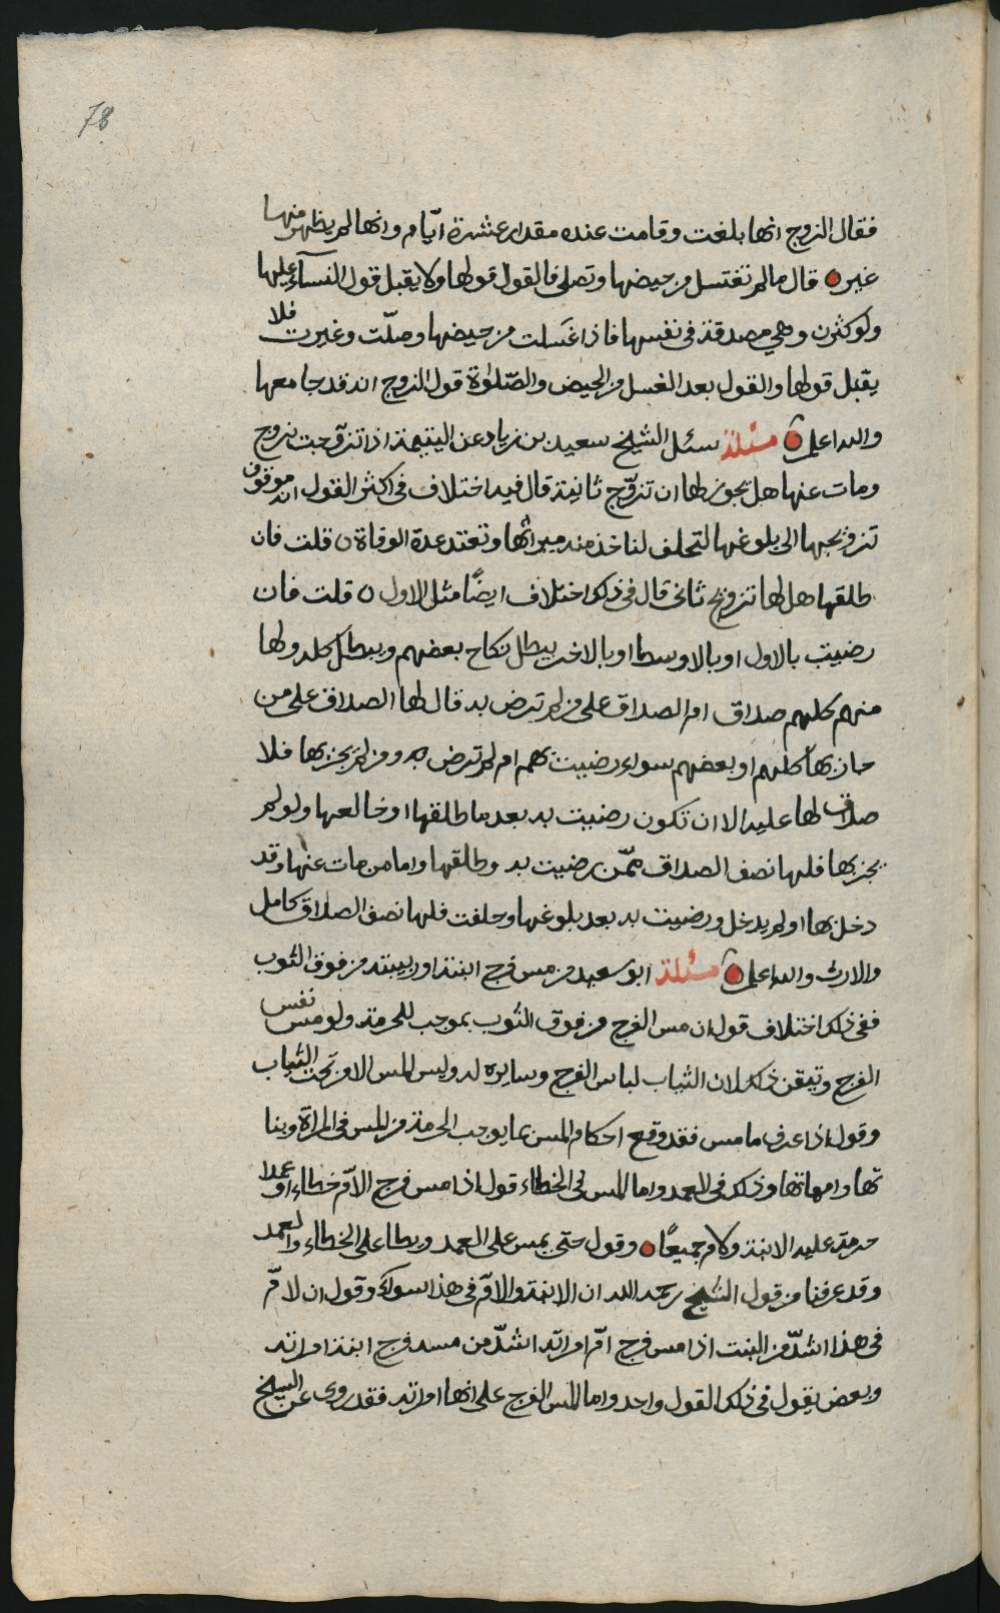 78
فقال الزوج انها بلغت وقامت عنده مقدار عشرة ايّام وانها لم يظهر منها
غير ه قال ما لم تغتسل من حيضها وتصلى فالقول قولها ولا يقبل قول النسآء عليها
ولو كثرن وهي مصدقة فى نفسها فاذا غسلت من حيضها وصلّت وغيرت فلا
يقبل قولها والقول بعد الغسل من الحيض والصّلوٰة قول الزوج انه قد جامعها
والله اعلم ه مسئلة سئل الشيخ سعيد بن زياد عن اليتيمة اذا تزوّجت بزوج
ومات عنها هل يجوز لها ان تزوّج ثانية قال فيه اختلاف فى اكثر القول انه موقوف
تزويجها الى بلوغها لتحلف لناخذ منه ميراثها وتعتد عدة الوفاة ه قلت فان
طلقها هل لها تزويج ثانى قال فى ذلك اختلاف ايضًا مثل الاول ه قلت فان
رضيت بالاول او بالاوسط او بالاخر يبطل نكاح بعضهم ويبطل كله ولها
منهم كلهم صداق ام الصداق على من لم ترض به قال لها الصداق على من
جاز بها كلهم او بعضهم سواء رضيت بهم ام لم ترض به ومن لم يجز بها فلا
صداق لها عليه الا ان تكون رضيت به بعد ما طلقها او خالعها ولو لم
يجز بها فلها نصف الصداق ممّن رضيت به وطلقها واما من مات عنها وقد
دخل بها او لم يدخل ورضيت به بعد بلوغها وحلفت فلها نصف الصداق كامل
والارث والله اعلم ه مسئلة ابو سعيد من مس فرج ابنته او ربيبته من فوق الثوب
ففى ذلك اختلاف قول ان مس الفرج من فوق الثوب بموجب للحرمة ولو مس نفس
الفرج وتيقن ذلك لان الثياب لباس الفرج وساتره له وليس المس الا من تحت الثياب
وقول اذا عرف ما مس فقد وقع احكام المس بما يوجب الحرمة من المس فى المراة وبنا
تها وامهاتها وذلك فى العمد واما المس فى الخطاء قول اذا مس فرج الامّ خطاء او عمدا
حرمة عليه الابنة ولام جميعًا ه وقول حتى يمس على العمد ويطا على الخطاء والعمد
وقد عرفنا من قول الشيخ رحمه الله ان الابنة والامّ فى هذا سواء وقول ان لامّ
فى هذا اشدّ من البنت اذا مس فرج امّ امراته اشدّ من مسه فرج ابنة امراته
وبعض يقول فى ذلك القول واحد واما المس الفرج على انها امراته فقد روى عن الشيخ